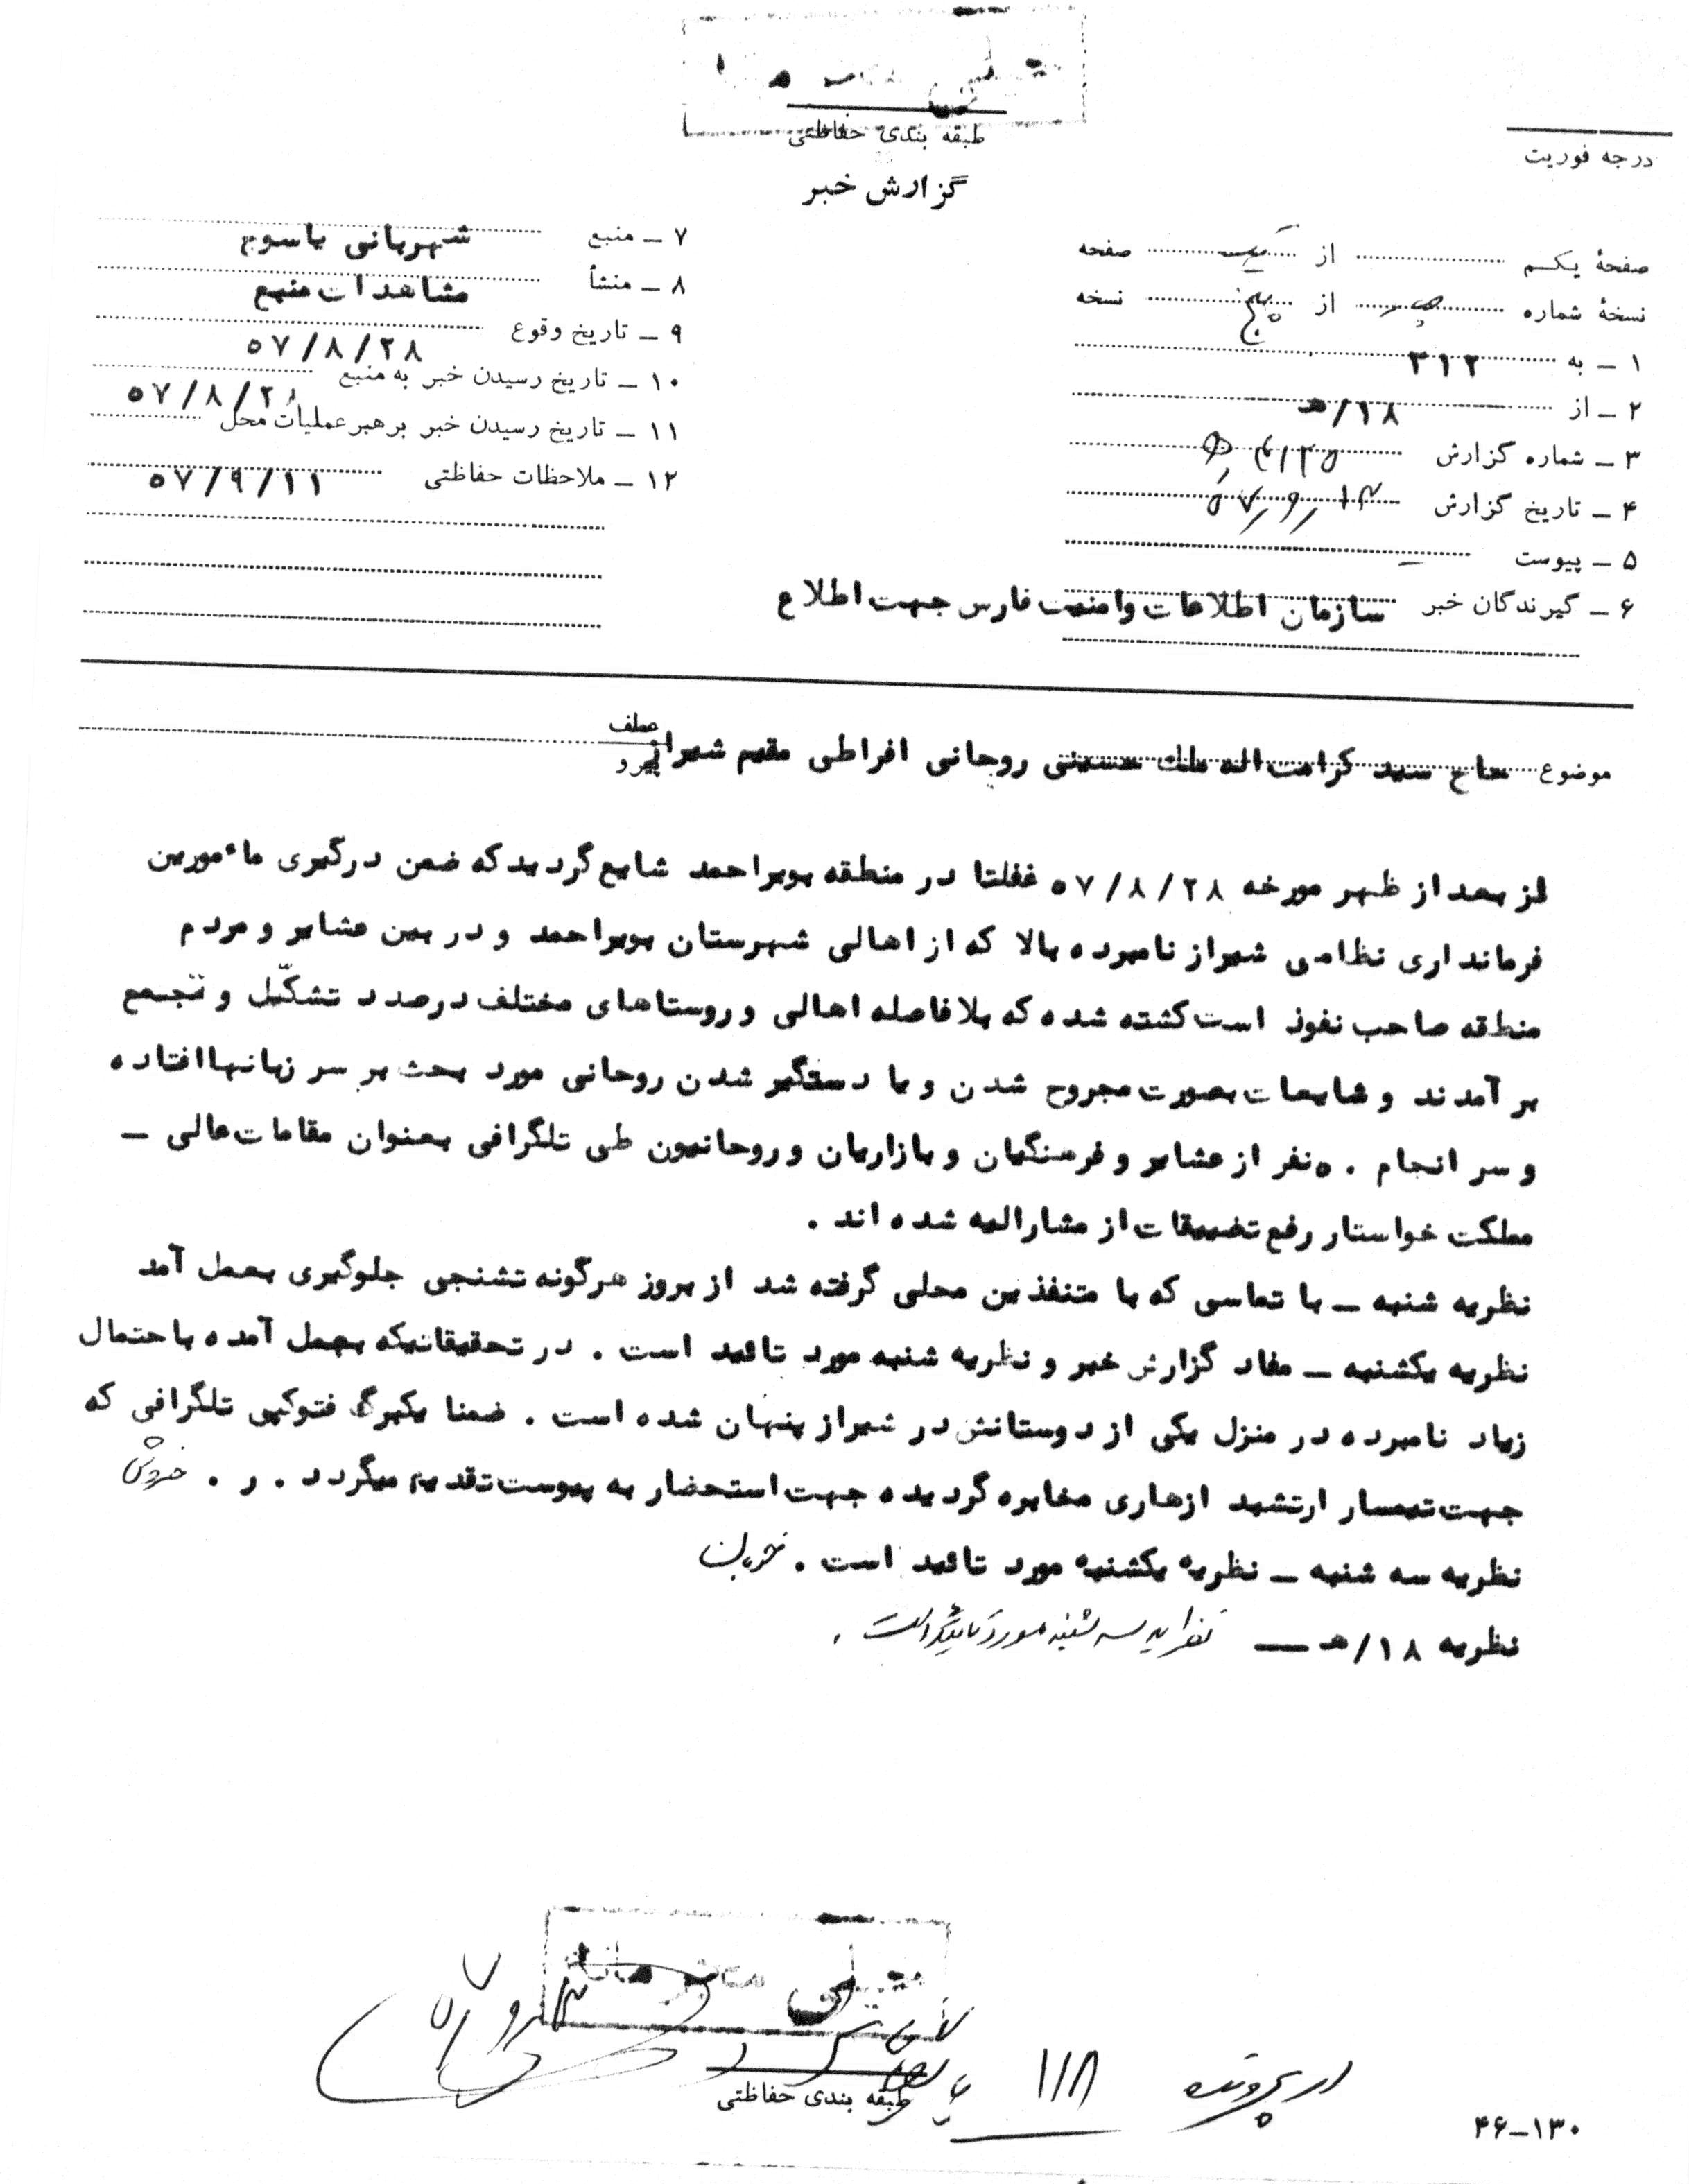 طبقه بندی حفاظتی
درجه فوریت
گزارش خبر
صفحهٔ یکم از یک صفحه
نسخهٔ شماره از پنج نسخه
۱ ـ به ۳۱۲
۲ ـ از ۱۸/هـ
۳ ـ شماره گزارش
۴ ـ تاریخ گزارش
۵ ـ پیوست ـ
۶ ـ گیرندگان خبر سازمان اطلاعات وامنیت فارس جهت اطلاع
۷ ـ منبع شهربانی یاسوج
۸ ـ منشأ مشاهدات منبع
۹ ـ تاریخ وقوع ۵۷/۸/۲۸
۱۰ ـ تاریخ رسیدن خبر به منبع ۵۷/۸/۲۸
۱۱ ـ تاریخ رسیدن خبر برهبر عملیات محل
۱۲ ـ ملاحظات حفاظتی ۵۷/۹/۱۱
عطف
پیرو
موضوع حاج سید کرامت اله ملک حسینی روحانی افراطی مقیم شیراز
از بعد از ظهر مورخه ۵۷/۸/۲۸ غفلتا در منطقه بویراحمد شایع گردید که ضمن درگیری ماٴمورین
فرمانداری نظامی شیراز نامبرده بالا که از اهالی شهرستان بویراحمد و در بین عشایر و مردم
منطقه صاحب نفوذ است کشته شده که بلافاصله اهالی و روستاهای مختلف درصدد تشکّیل و تجمع
بر آمدند و شایعات بصورت مجروح شدن و یا دستگیر شدن روحانی مورد بحث بر سر زبانها افتاده
و سر انجام ۵۰ نفر از عشایر و فرهنگیان و بازاریان و روحانیون طی تلگرافی بعنوان مقامات عالی ـ
مملکت خواستار رفع تضییقات از مشارالیه شده اند .
نظریه شنبه ـ با تماسی که با متنفذین محلی گرفته شد از بروز هرگونه تشنجی جلوگیری بعمل آمد
نظریه یکشنبه ـ مفاد گزارش خبر و نظریه شنبه مورد تائید است . در تحقیقاتیکه بعمل آمده باحتمال
زیاد نامبرده در منزل یکی از دوستانش در شیراز پنهان شده است . ضمنا یکبرگ فتوکپی تلگرافی که
جهت تیمسار ارتشبد ازهاری مخابره گردیده جهت استحضار به پیوست تقدیم میگردد . ر .
نظریه سه شنبه ـ نظریه یکشنبه مورد تائید است .
نظریه ۱۸/هـ ـ نظریه سه شنبه مورد تائید است .
طبقه بندی حفاظتی
در پرونده
۴۶ـ۱۳۰